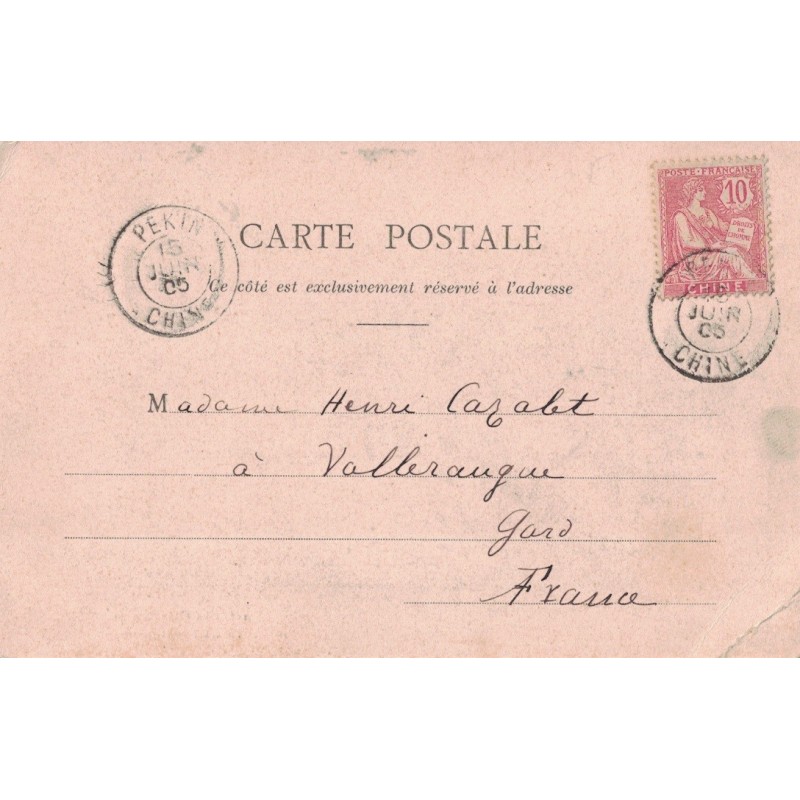 POSTE FRANÇAISE
10
DROITS
DE
L'HOMME
CHINE
PEKIN
15
JUIN
05
CHINE
CARTE POSTALE
Ce côté est exclusivement réservé à l'adresse
JUIN
05
CHINE
Madame Henri Cazalet
à Valleraugue
Gard
France